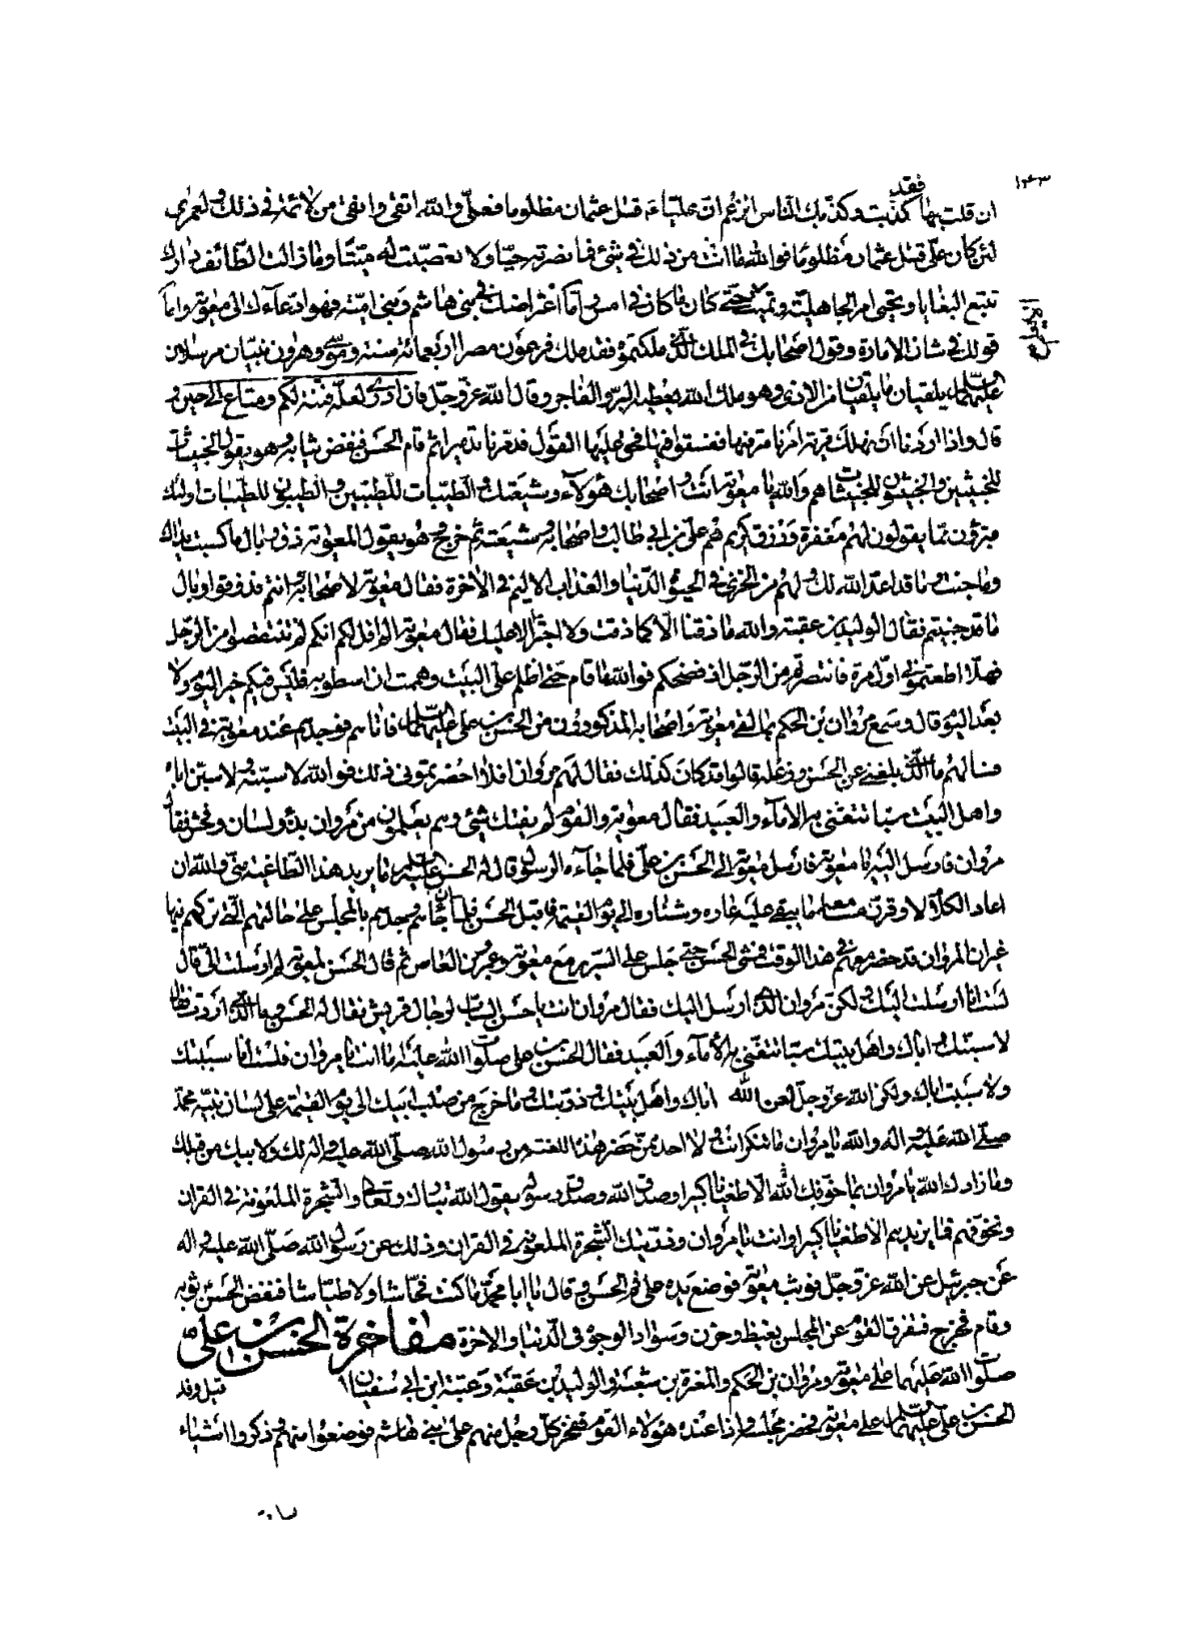 ١٤٣
فقد
ان قلت بها كذبت وكذبك الناس اتزعم ان عليا ع قتل عثمان مظلوما فعلي والله اتقى وانقى من لائمة في ذلك ولعمري
لئن كان علي قتل عثمان مظلوما فوالله ما انت من ذلك في شئ فما نصرته حيا ولا تعصبت له ميتا وما زالت الطائف دارك
تتبع البغايا وتحيى امر الجاهلية وتميت حتى كان ما كان في امس اما اعتراضك في بني هاشم وبني امية فهو ادعاءك الى معوية واما
قولك في شان الامارة وقول اصحابك في الملك الذي ملكتموه فقد ملك فرعون مصر اربعمائة سنة وموسى وهرون نبيان مرسلان
عليهما السلام يلقيان ما يلقيان من الاذى وهو ملك الله يعطيه البر والفاجر وقال الله عز وجل فان ادري لعله فتنة لكم ومتاع الى حين و
قال واذا اردنا ان نهلك قرية امرنا مترفيها ففسقوا فيها فحق عليها القول فدمرناها تدميرا ثم قام الحسن فنفض ثيابه وهو يقول الخبيثات
للخبيثين والخبيثون للخبيثات هم والله يا معوية انت واصحابك هؤلاء وشيعتك والطيبات للطيبين والطيبون للطيبات اولئك
مبرؤن مما يقولون لهم مغفرة ورزق كريم هم علي بن ابي طالب واصحابه وشيعته ثم خرج وهو يقول لمعوية ذق وبال ما كسبت يداك
وما جنت وما قد اعد الله لك ولهم من الخزي في الحيوة الدنيا والعذاب الاليم في الاخرة فقال معوية لاصحابه وانتم فذوقوا وبال
ما قد جنيتم فقال الوليد بن عقبة والله ما ذقنا الا كما ذقت ولا اجترا الا عليك فقال معوية الم اقل لكم انكم لم تنتقصوا من الرجل
فهلا اطعتموني اول مرة فانتصرتم من الرجل اذ فضحكم فوالله ما قام حتى اظلم علي البيت وهممت ان اسطو به فليس فيكم خير اليوم ولا
بعد اليوم قال وسمع مروان بن الحكم بما لقي معوية واصحابه المذكورون من الحسن بن علي عليهما السلام فاتاهم فوجدهم عند معوية في البيت
فسالهم ما الذي بلغني عن الحسن وزعله قالوا قد كان كذلك فقال لهم مروان افلا احضرتموني ذلك فوالله لاسبنه ولاسبن اباه
واهل البيت سبا تتغنى به الاماء والعبيد فقال معوية والقوم لم يفتك شئ وهم يعلمون من مروان بذو لسان وفحش فقال
مروان فارسل اليه يا معوية فارسل معوية الى الحسن بن علي فلما جاءه الرسول قال له الحسن عليه السلام ما يريد هذا الطاغية مني والله ان
اعاد الكلام لاوقرن مسامعه ما يبقى عليه عاره وشناره الى يوم القيمة فاقبل الحسن فلما ان جاءهم وجدهم بالمجلس على حالتهم التي تركهم فيها
غير ان المروان قد حضر معهم في هذا الوقت فمشى الحسن حتى جلس على السرير مع معوية وعمرو بن العاص ثم قال الحسن لمعوية لم ارسلت الي قال
لست انا ارسلت اليك ولكن مروان الذي ارسل اليك فقال مروان انت يا حسن السباب لرجال قريش فقال له الحسن وما الذي اردت فقال
لاسبنك واباك واهل بيتك سبا تتغنى به الأماء والعبيد فقال الحسن بن علي صلوات الله عليه اما انت يا مروان فلست انا سببتك
ولا سببت اباك ولكن الله عز وجل لعن الله اباك واهل بيتك وذريتك وما خرج من صلب ابيك الى يوم القيمة على لسان نبيه محمد
صلى الله عليه واله والله يا مروان ما تنكر انت ولا احد ممن حضر هذه اللعنة من رسول الله صلى الله عليه واله لك ولابيك من قبلك
وما زادك الله يا مروان بما خوفك الله الا طغيانا كبيرا وصدق الله وصدق رسوله يقول الله تبارك وتعالى والشجرة الملعونة في القران
ونخوفهم فما يزيدهم الا طغيانا كبيرا وانت يا مروان وذريتك الشجرة الملعونة في القران وذلك عن رسول الله صلى الله عليه واله
عن جبرئيل عن الله عز وجل فوثب معوية فوضع يده على فم الحسن وقال يا ابا محمد ما كنت فحاشا ولا طياشا فنفض الحسن ثوبه
وقام فخرج فتفرق القوم عن المجلس بغيظ وحزن وسواد الوجوه في الدنيا والاخرة مفاخرة الحسن بن علي
صلوات الله عليهما على معوية ومروان بن الحكم والمغيرة بن شعبة والوليد بن عقبة وعتبة ابن ابي سفيان قيل وفد
الحسن بن علي عليهما السلام على معوية فحضر مجلسه واذا عنده هؤلاء القوم ففخر كل رجل منهم على بني هاشم فوضعوا منهم وذكروا اشياء